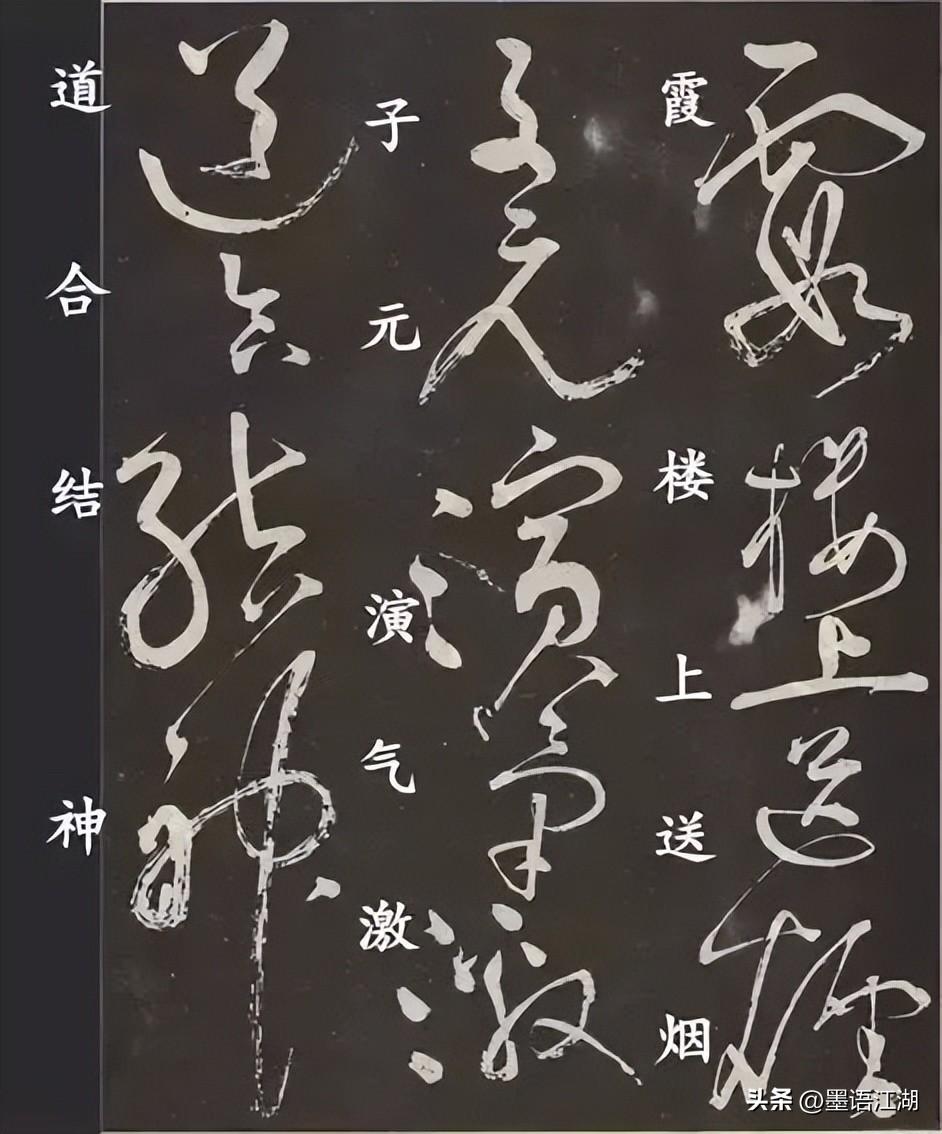 霞楼上送烟
子元演气激
道合结神
头条 @墨语江湖